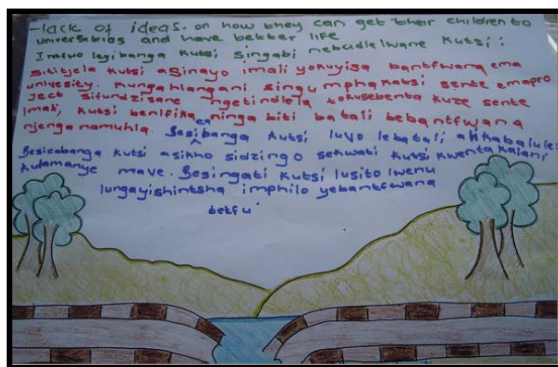 -lack of ideas. on how they can get their children to
universities and have better life
Imfvo leyibanga kutsi singabi nebudlelwane kutsi:
Sititjela kutsi asinayo imali yokuyisa bantfwana ema
univesity. Kungahlangani singumphakatsi sente emapro
ject sifundzisane ngetindlela tokusebenta kuze sente
imali, kutsi benifika eninga biti batali bebantfwana
njenganamuhla. Besibanga kutsi luvo lebatali alikabalule:
Besicabanga kutsi asikho sidzingo sekwati kutsi kwentakalani
kulamanye mave. Besingati kutsi lusito lwenu
lungayishintsha imphilo yebantfwana
betfu